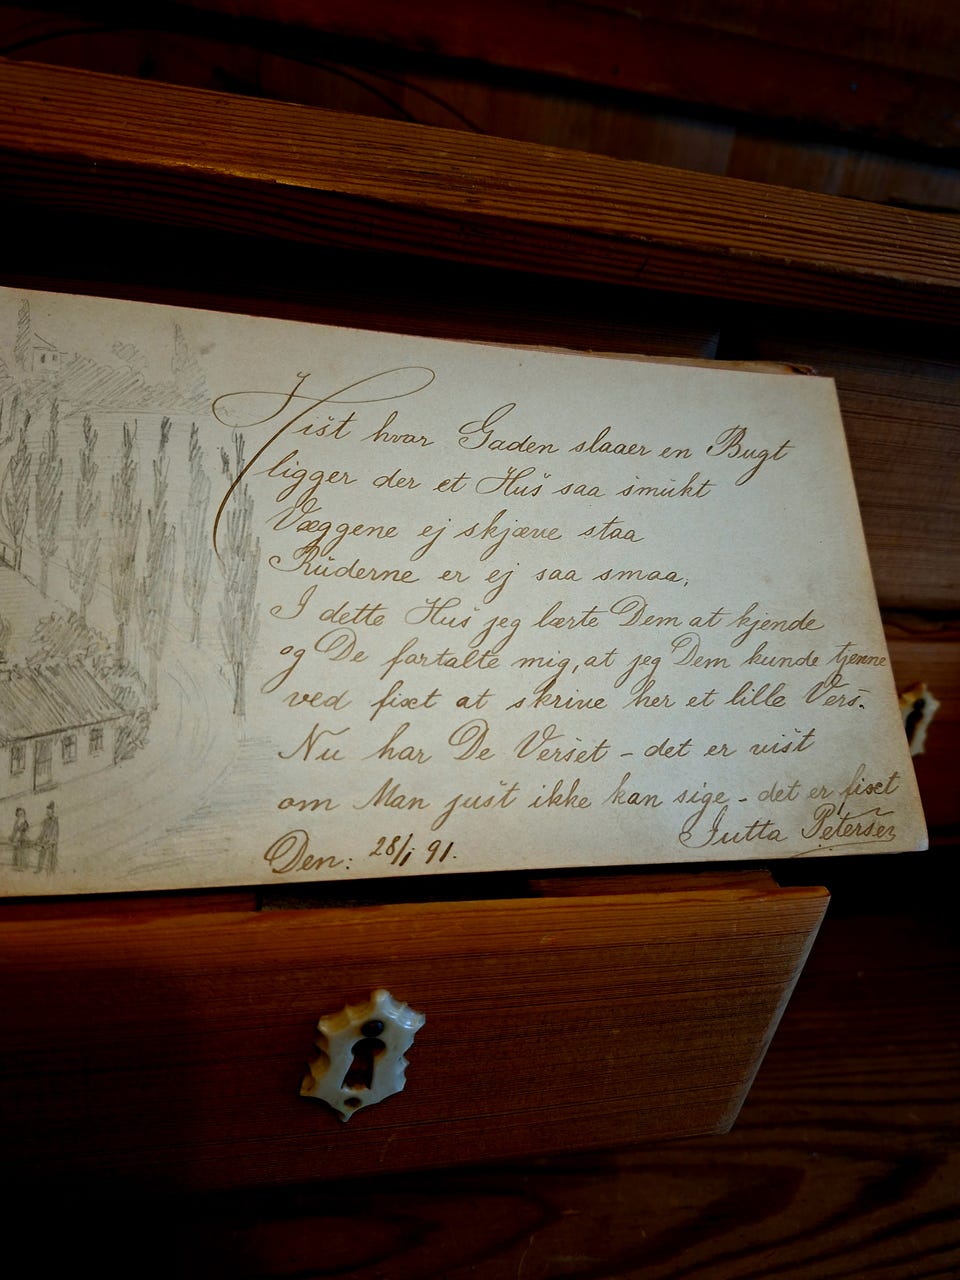 Hist hvor Gaden slaaer en Bugt
ligger der et Hus saa smukt
Væggene ej skjæve staa
Ruderne er ej saa smaa,
I dette Hus jeg lærte Dem at kjende
og De fortalte mig, at jeg Dem kunde tjenne
ved fixt at skrive her et lille Vers.
Nu har De Verset - det er vist
om Man just ikke kan sige - det er fixet
Jutta Petersen
Den: 28/1 91.